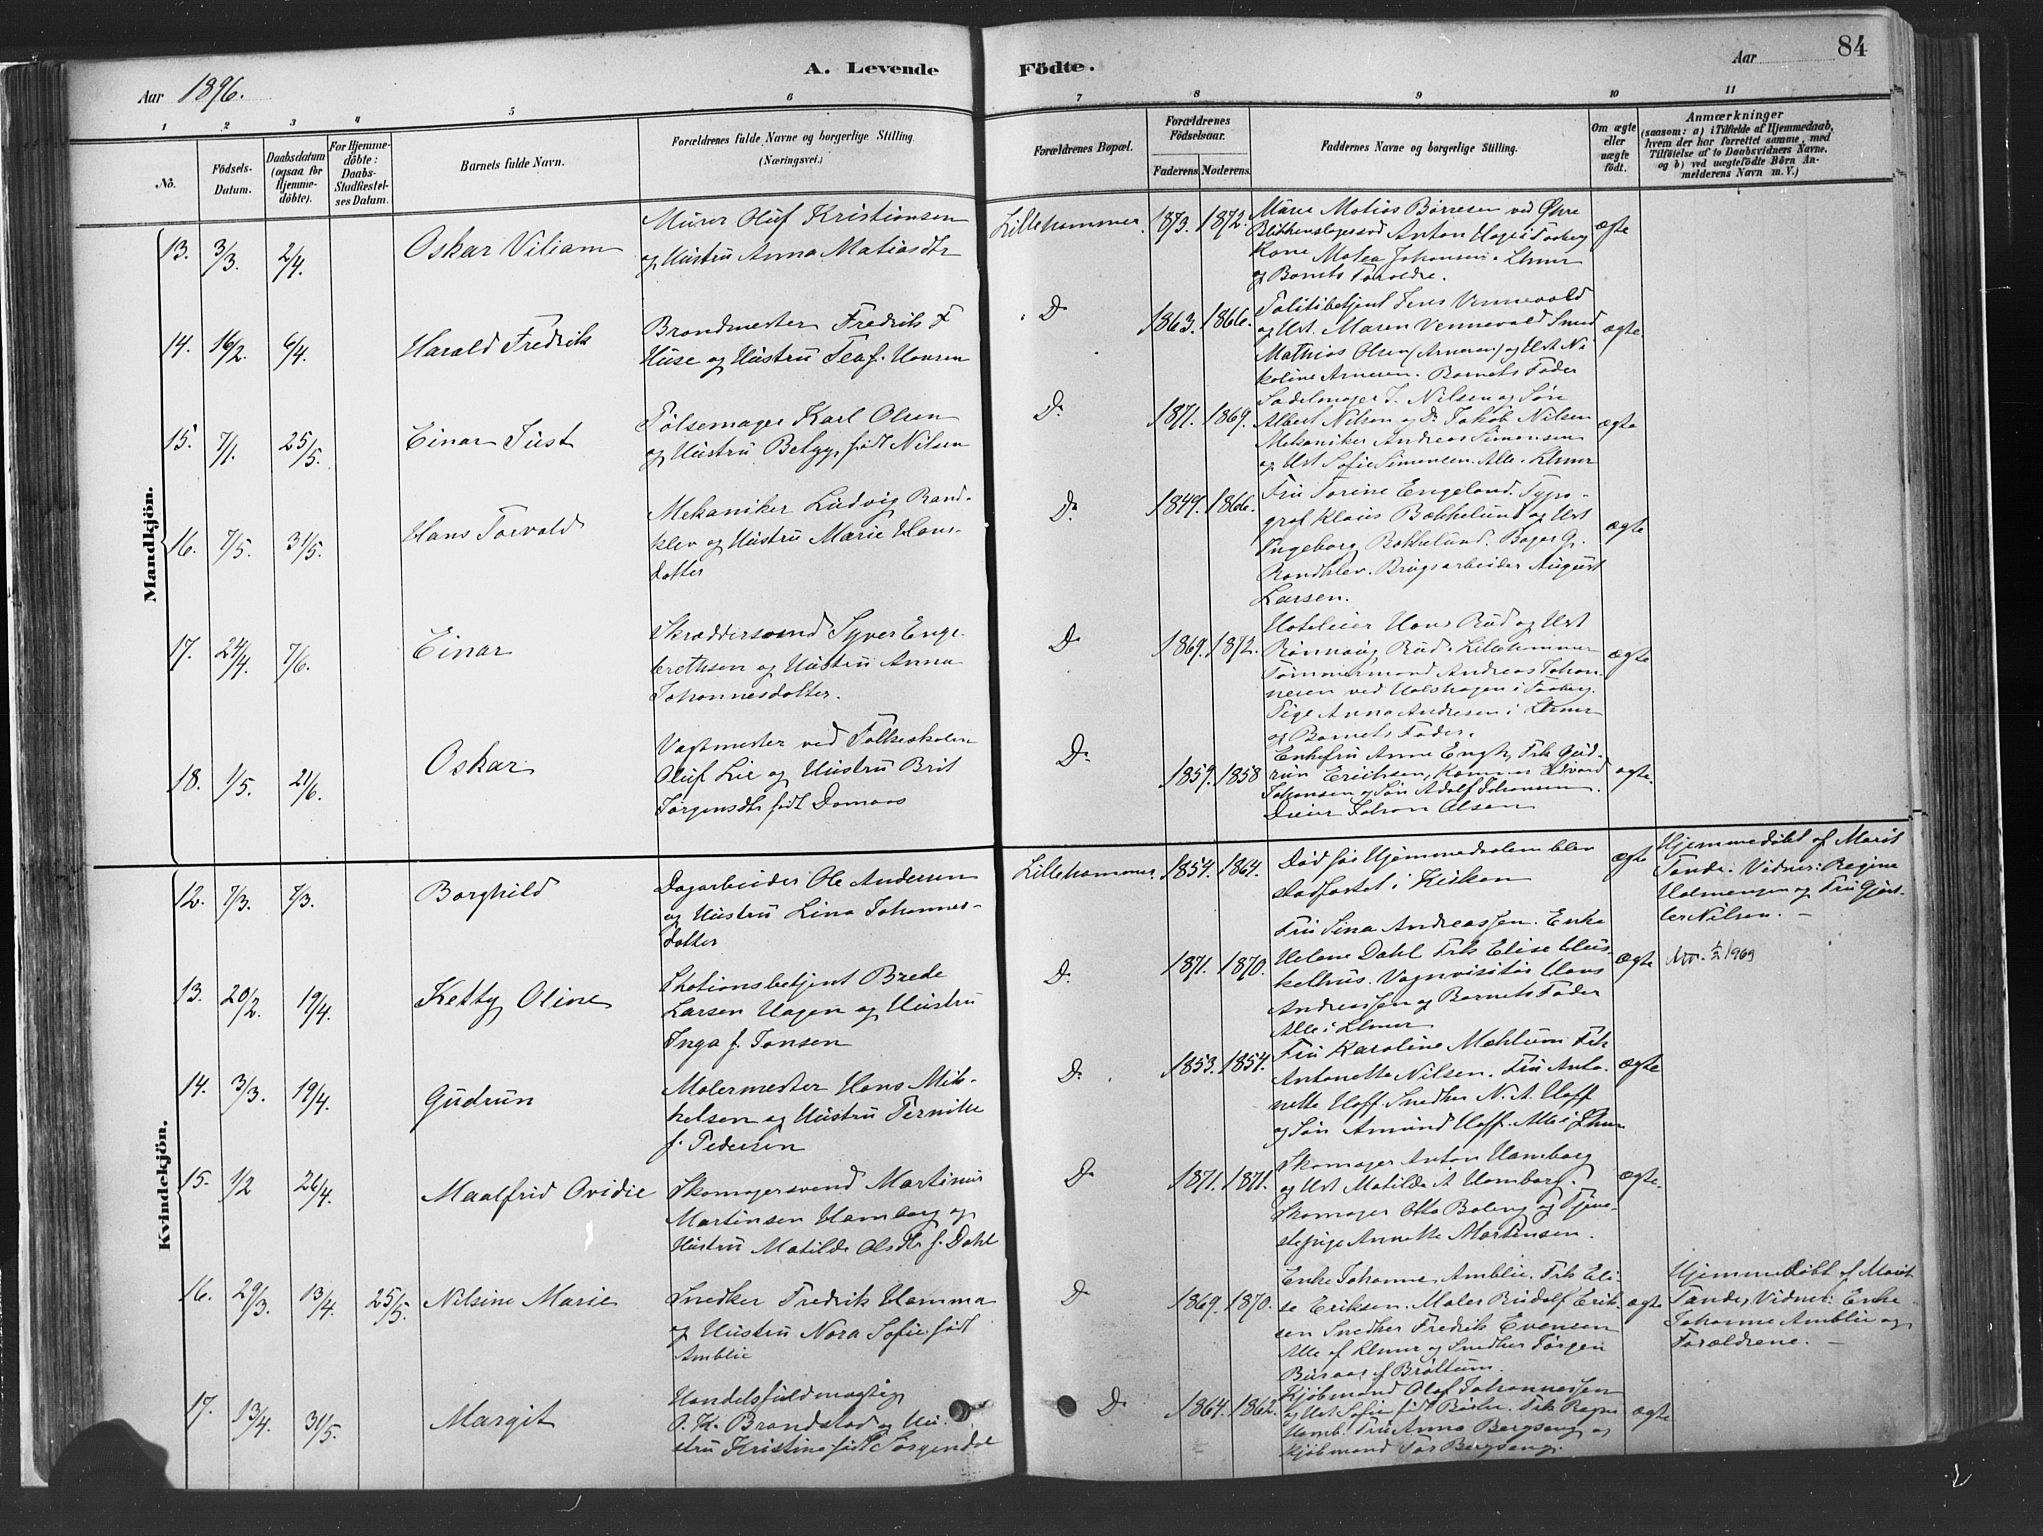 84
A. Levende Födte.
Aar 1896.
Aar
1 2 3 4 5 6 7 8 9 10 11
No.
Födsels-
Datum.
Daabsdatum
(ogsaa for
Hjemme-
döbte).
For Hjemme-
döbte:
Daabs-
Stadfæstel-
ses Datum.
Barnets fulde Navn.
Forældrenes fulde Navne og borgerlige Stilling.
(Næringsvei.)
Forældrenes Bopæl.
Forældrenes
Födselsaar.
Faderens. Moderens.
Faddernes Navne og borgerlige Stilling.
Om ægte
eller
uægte
födt.
Anmærkninger
(saasom: a) i Tilfælde af Hjemmedaab,
hvem der har forrettet samme, med
Tilföielse af to Daabsvidners Navne,
og b) ved uægtefödte Börn An-
melderens Navn m. V.)
Mandkjön.
13. 3/3 2/4 Oskar Viliam
Murer Oluf Kristiansen
og Hustru Anna Matiasdtr
Lillehammer. 1873. 1872.
Marie Matias Børresen ved Øvre
Anton Hage i Faaberg
Kone Matea Johansen. Lhmr
og Barnets Forældre.
ægte
14. 16/2 6/4 Harald Fredrik
Brandmester Fredrik F
Huse og Hustru Tea f. Hansen
Do 1863. 1866.
Politibetjent Jens Vennevold
og Hst. Maren Vennevold Smed
Mathias Olsen (Arnesen) og Hst Ni-
koline Arnesen. Barnets Fader
ægte
15. 7/1. 25/5. Einar Just
Pølsemager Karl Olsen
og Hustru Betzy, født Nilsen
Do 1871. 1869.
Sadelmager J. Nilsen og Søn
Albert Nilsen og Do Jakob Nilsen
Mekaniker Andreas Simensen
og Hst Sofie Simensen. Alle Lhmr
ægte
16. 7/5. 31/5. Hans Torvald
Mekaniker Ludvig Rand-
klev og Hustru Marie Hans-
datter
Do 1849. 1866.
Fru Torine Engeland. Typo-
graf Klaus Bækkelund og Hst
Ingeborg Bækkelund. Bager G.
Randklev. Brugsarbeider August
Larsen.
ægte
17. 24/4. 7/6. Einar
Skræddersvend Syver Enge-
brethsen og Hustru Anna
Johannesdatter.
Do 1869. 1872.
Hoteleier Hans Rud og Hst
Rønnaug Rud. Lillehammer
Tømmermand Andreas Johan-
nesen ved Holshagen i Faaberg.
Pige Anna Andresen i Lhmr
og Barnets Fader.
ægte
18. 1/5. 21/6. Oskar
Vagtmester ved Folkeskolen
Oluf Lie og Hustru Brit
Jørgensdtr født Domaas
Do 1859. 1858
Enkefru Anne Engh, Frk Gud-
run Erichsen, Edvard
Johansen og Søn Adolf Johansen.
Dreier Johan Olsen
ægte.
Kvindekjön.
12. 7/3. 7/3. Borghild
Dagarbeider Ole Andersen
og Hustru Lina Johannes-
datter
Lillehammer. 1854. 1864.
Død før Hjemmedaaben blev
stadfæstet i Kirken
ægte
Hjemmedøbt af Marit
Tande. Vidner: Regine
Holmengen og Fru Gjørt-
ler Nilsen. —
13. 20/2. 19/4. Ketty Oline
Stationsbetjent Brede
Larsen Hagen og Hustru
Inga f. Jansen
Do. 1871. 1870.
Fru Sina Andreassen. Enke
Helene Dahl Frk Elise Hus-
kelhus. Vognvisitør Hans
Andreassen og Barnets Fader
Alle i Lhmr
ægte
1969
14. 3/3. 19/4. Gudrun
Malermester Hans Mik-
kelsen og Hustru Pernille
f. Pedersen
Do. 1853. 1854.
Fru Karoline Mæhlum Frk
Antonette Nilsen. Fru Anto-
nette Hoff. Snedker N. A. Hoff
og Søn Amund Hoff. Alle i Lhmr
ægte
15. 1/2 26/4. Maalfrid Ovidie
Skomagersvend Martinus
Martinsen Hamborg og
Hustru Matilde Olsdtr f. Dahl
Do 1871. 1871.
Skomager Anton Hamborg
og Hst Matilde A Hamborg.
Skomager Otto Boleng og Tjene-
stepige Annette Martinsen.
ægte.
16. 29/3. 13/4. 25/5. Nilsine Marie
Snedker Fredrik Hamma
og Hustru Nora Sofie født
Amblie
Do 1869. 1870.
Enke Johanne Amblie. Frk Eli-
se Eriksen. Maler Rudolf Erik-
sen Snedker Fredrik Evensen
Alle af Lhmr og Snedker Jørgen
Buraas af Brøttum.
ægte
Hjemmedøbt af Marit
Tande, Vidner: Enke
Johanne Amblie og
Forældrene. —
17. 13/4. 31/5. Margit
Handelsfuldmægtig
O. K. Brandstad og Hu-
stru Kristine født Jørgendal
Do. 1864. 1862.
Kjøbmand Olaf Johannessen
og Hst Sofie født Frk Ragna
Hamb. Fru Anna Bergseng og
Kjøbmand Tor Bergseng.
ægte